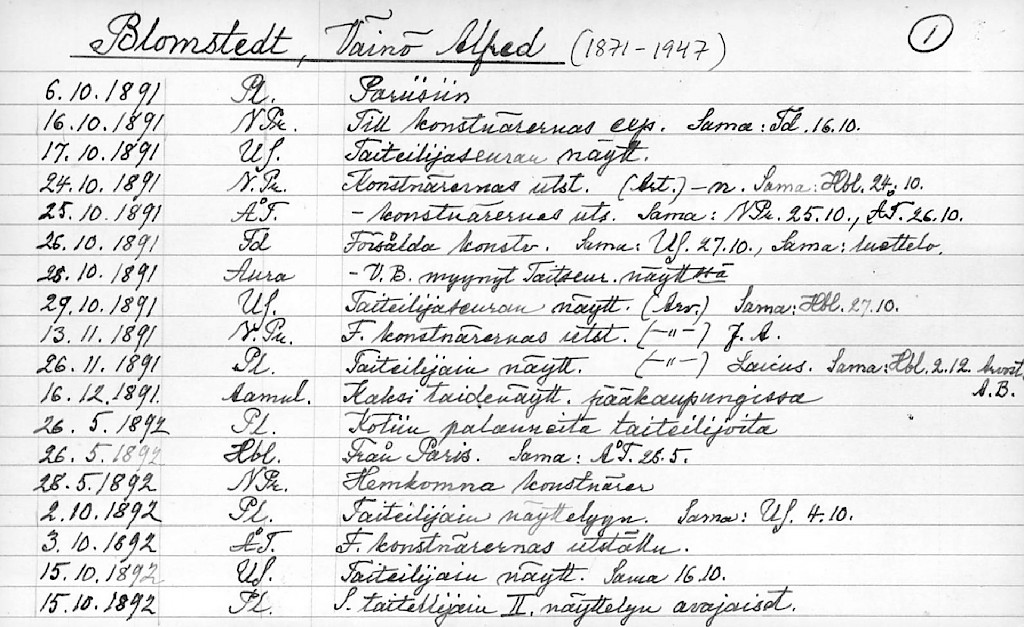 Blomstedt, Väinö Alfred (1871-1947) 1
6.10.1891 Pl. Pariisiin
16.10.1891 N.Pr. Till konstnärernas exp. Sama: Fd. 16.10.
17.10.1891 Us. Taiteilijaseuran näytt.
24.10.1891 N.Pr. Konstnärernas utst. (Art.) -n. Sama: Hbl. 24.10.
25.10.1891 ÅT. - konstnärernas uts. Sama: N.Pr. 25.10., ÅT. 26.10.
26.10.1891 Fd Försålda konstv. Sama: Us. 27.10., Sama: luettelo.
28.10.1891 Aura - V.B. myynyt Taitseur. näyttssä
29.10.1891 Us. Taiteilijaseuran näytt. (Arv.) Sama: Hbl. 27.10.
13.11.1891 N.Pr. F. konstnärernas utst. (-"-) J.A.
26.11.1891 Pl. Taiteilijain näytt. (-"-) Laicus. Sama: Hbl. 2.12. arvost. A.B.
16.12.1891. Aamul. Kaksi taidenäytt. pääkaupungissa
26.5.1892 Pl. Kotiin palanneita taiteilijoita
26.5.1892 Hbl. Från Paris. Sama: ÅT. 28.5.
28.5.1892 N.Pr. Hemkomna konstnärer
2.10.1892 Pl. Taiteilijain näyttelyyn. Sama: Us. 4.10.
3.10.1892 ÅT. F. konstnärernas utställn.
15.10.1892 Us. Taiteilijain näytt. Sama 16.10.
15.10.1892 Pl. S. taiteilijain II. näyttelyn avajaiset.